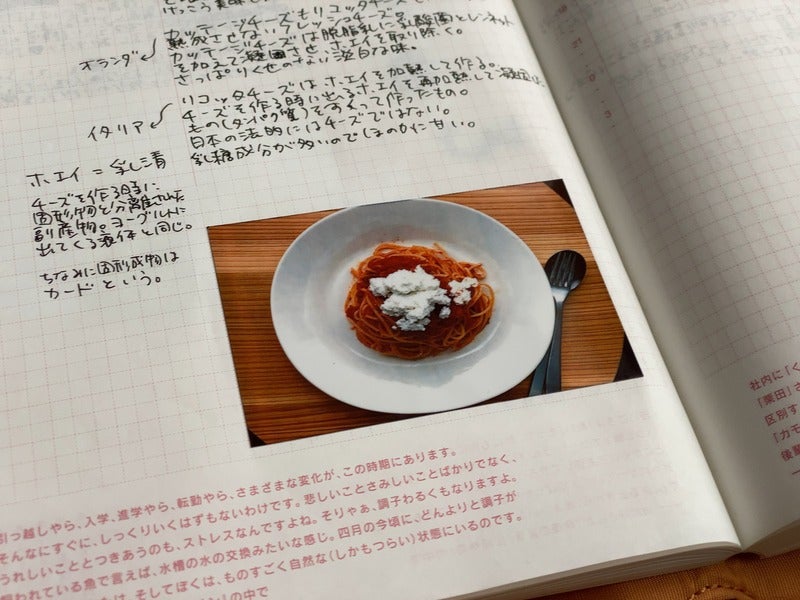 けっこう美味し
カッテージチーズもリコッタチーズも
熟成させないフレッシュチーズ。
カッテージチーズは脱脂乳に乳酸菌とレンネット
を加えて凝固させ、ホエイを取り除く。
さっぱりくせのない淡白な味。
オランダ
リコッタチーズはホエイを加熱して作る。
チーズを作る時に出るホエイを再加熱して凝固した
もの(タンパク質)をすくって作ったもの。
日本の法的にはチーズではない。
乳糖成分が多いのでほのかに甘い。
イタリア
ホエイ=乳清
チーズを作る時に
固形物と分離された
副産物。ヨーグルトに
出てくる液体と同じ。
ちなみに固形成物は
カードという。
引っ越しやら、入学、進学やら、転勤やら、さまざまな変化が、この時期にあります。
そんなにすぐに、しっくりいくはずもないわけです。悲しいことさみしいことばかりでなく、
うれしいこととつきあうのも、ストレスなんですよね。そりゃあ、調子わるくもなりますよ。
飼われている魚で言えば、水槽の水の交換みたいな感じ。四月の今頃に、どんよりと調子が
は、そしてぼくは、ものすごく自然な(しかもつらい)状態にいるのです。
の中で
社内に「く
「栗田」さ
区別す
「カモ
後輩